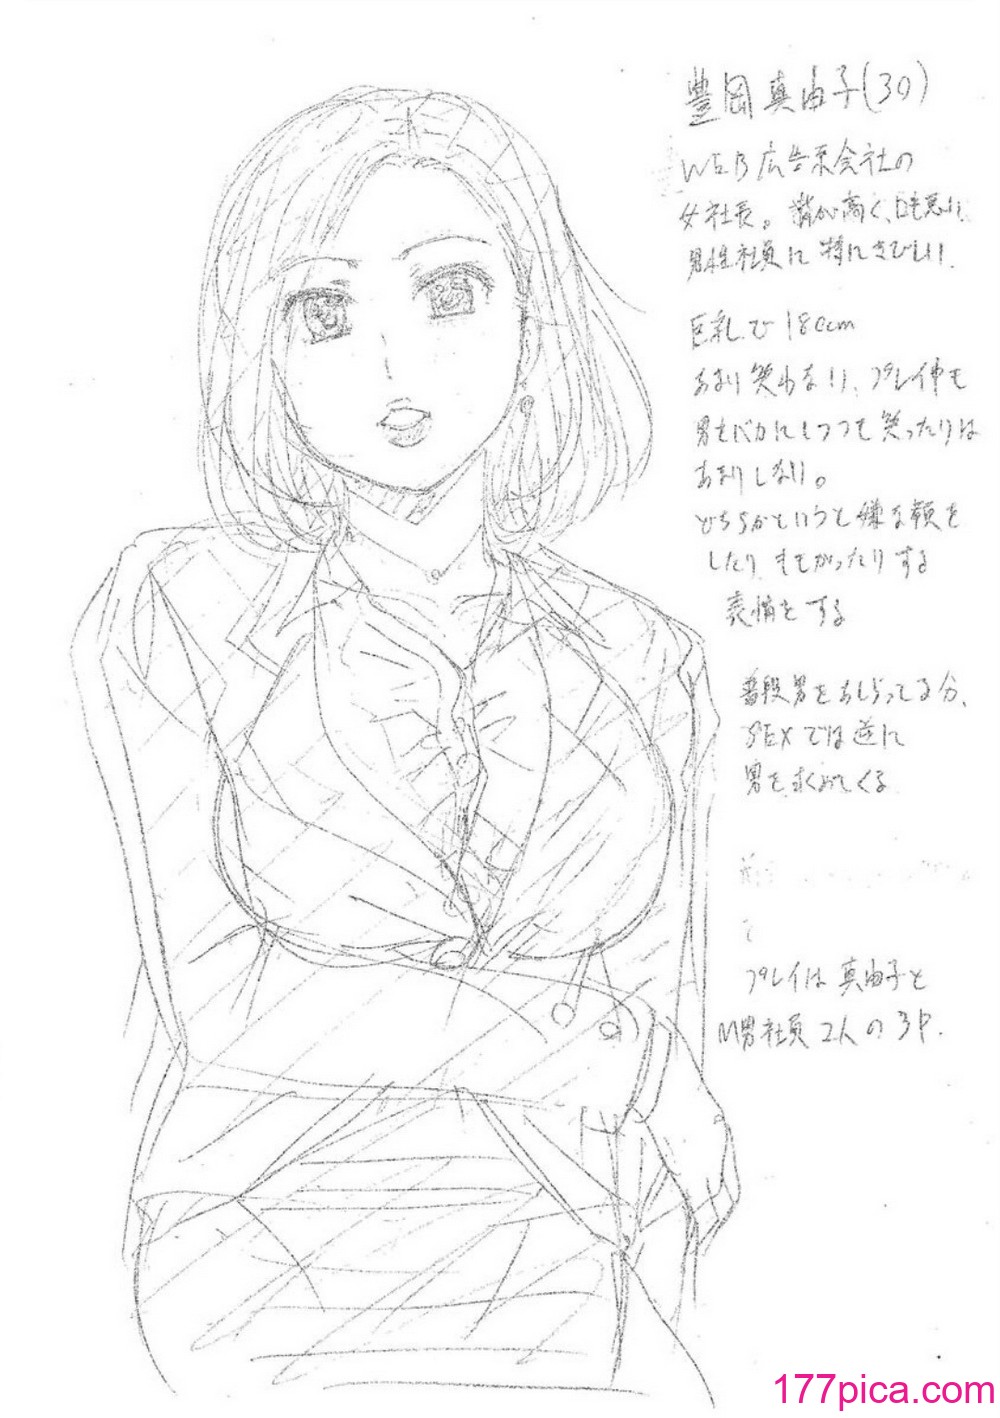 豊岡真由子(30)
WEB広告系会社の
女社長。背が高く、口も悪い。
男性社員に特にきびしい。
巨乳で180cm
あまり笑わない、プレイ中も
男をバカにしつつも笑ったりは
あまりしない。
どちらかというと嫌な顔を
したり、もてがったりする
表情をする
普段男をあしらってる分、
SEXでは逆に
男を求めてくる
プレイは真由子と
M男社員2人の3P.
177pica.com